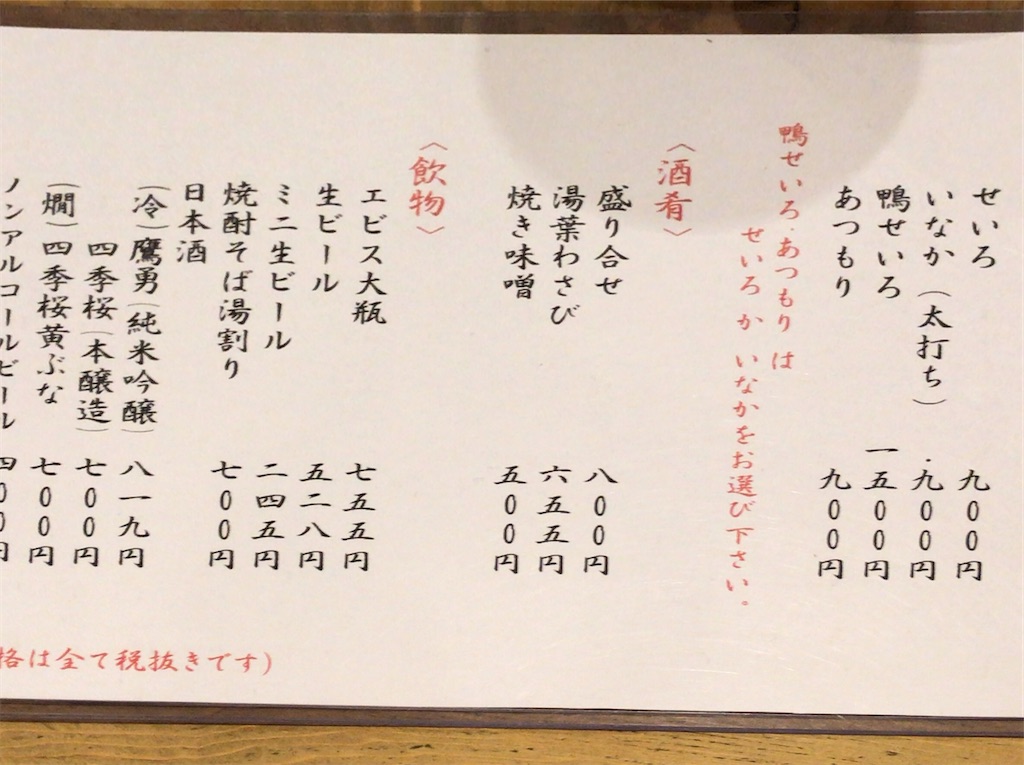 せいろ 九〇〇円
いなか（太打ち） 九〇〇円
鴨せいろ 一五〇〇円
あつもり 九〇〇円
鴨せいろ・あつもり は
せいろ か いなかをお選び下さい。
〈酒肴〉
盛り合せ 八〇〇円
湯葉わさび 六五五円
焼き味噌 五〇〇円
〈飲物〉
エビス大瓶 七五五円
生ビール 五二八円
ミニ生ビール 二四五円
焼酎そば湯割り 七〇〇円
日本酒
（冷）鷹勇（純米吟醸） 八一九円
四季桜（本醸造） 七〇〇円
（燗）四季桜黄ぶな 七〇〇円
ノンアルコールビール 四〇〇円
格は全て税抜きです）